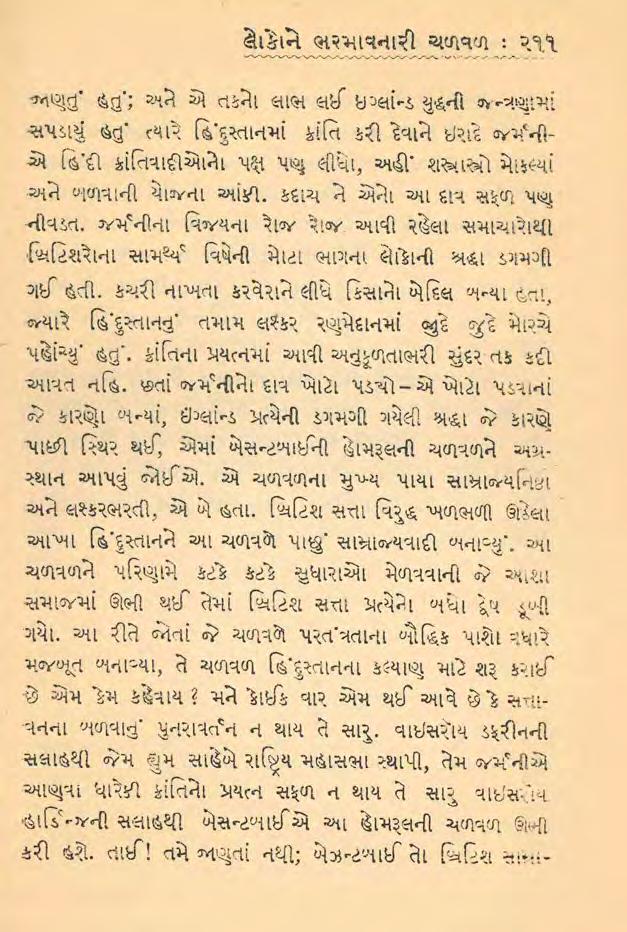 લોકોને ભરમાવનારી ચળવળ : ૨૧૧
જાણતું હતું; અને એ તકનો લાભ લઈ ઇંગ્લાંન્ડ યુદ્ધની જન્ત્રણામાં
સપડાયું હતું ત્યારે હિંદુસ્તાનમાં ક્રાંતિ કરી દેવાને ઇરાદે જર્મની-
એ હિંદી ક્રાંતિવાદીઓનો પક્ષ પણ લીધો, અહીં શસ્ત્રાસ્ત્રો મોકલ્યાં
અને બળવાની યોજના આંકી. કદાચ ને એનો આ દાવ સફળ પણ
નીવડત. જર્મનીના વિજયના રોજ રોજ આવી રહેલા સમાચારોથી
બ્રિટિશરોના સામર્થ્ય વિષેની મોટા ભાગના લોકોની શ્રદ્ધા ડગમગી
ગઈ હતી. કચરી નાખતા કરવેરાને લીધે કિસાનો બેદિલ બન્યા હતા,
જ્યારે હિંદુસ્તાનનું તમામ લશ્કર રણમેદાનમાં જુદે જુદે મોરચે
પહોંચ્યું હતું. ક્રાંતિના પ્રયત્નમાં આવી અનુકૂળતાભરી સુંદર તક કદી
આવત નહિ. છતાં જર્મનીનો દાવ ખોટો પડ્યો – એ ખોટો પડવાનાં
જે કારણો બન્યાં, ઇંગ્લાંન્ડ પ્રત્યેની ડગમગી ગયેલી શ્રદ્ધા જે કારણે
પાછી સ્થિર થઈ, એમાં બેસન્ટબાઈની હોમરૂલની ચળવળને અગ્ર-
સ્થાન આપવું જોઈએ. એ ચળવળના મુખ્ય પાયા સામ્રાજ્યનિષ્ઠા
અને લશ્કરભરતી, એ બે હતા. બ્રિટિશ સત્તા વિરુદ્ધ ખળભળી ઊઠેલા
આખા હિંદુસ્તાનને આ ચળવળે પાછું સામ્રાજ્યવાદી બનાવ્યું. આ
ચળવળને પરિણામે કટકે કટકે સુધારાઓ મેળવવાની જે આશા
સમાજમાં ઊભી થઈ તેમાં બ્રિટિશ સત્તા પ્રત્યેનો બધો દ્વેષ ડૂબી
ગયો. આ રીતે જોતાં જે ચળવળે પરતંત્રતાના બૌદ્ધિક પાશો વધારે
મજબૂત બનાવ્યા, તે ચળવળ હિંદુસ્તાનના કલ્યાણ માટે શરૂ કરાઈ
છે એમ કેમ કહેવાય ? મને કોઈક વાર એમ થઈ આવે છે કે સત્તા-
વનના બળવાનું પુનરાવર્તન ન થાય તે સારુ. વાઇસરૉય ડફરીનની
સલાહથી જેમ હ્યુમ સાહેબે રાષ્ટ્રિય મહાસભા સ્થાપી, તેમ જર્મનીએ
આણવા ધારેલી ક્રાંતિનો પ્રયત્ન સફળ ન થાય તે સારુ વાઇસરૉય
હાર્ડિન્જની સલાહથી બેસન્ટબાઈએ આ હોમરૂલની ચળવળ ઊભી
કરી હશે. તાઈ! તમે જાણતાં નથી; બેઝન્ટબાઈ તો બ્રિટિશ સામ્રા-